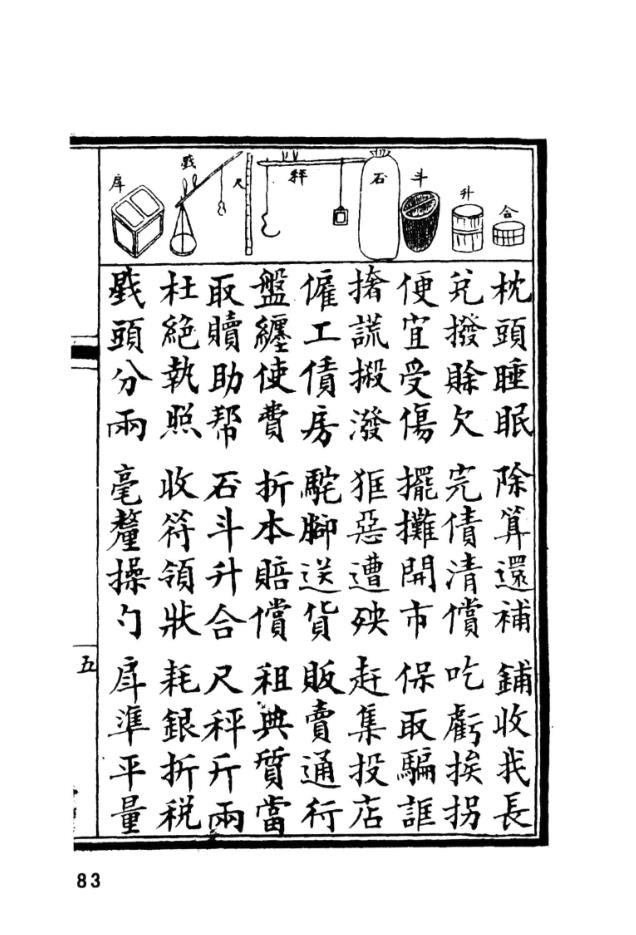 合
升
斗
石
秤
尺
戥
戽
枕頭睡眠 除算還補 鋪收我長
兌撥賒欠 完債清償 吃虧挨拐
便宜受傷 擺攤開市 保取騙誆
撦謊搬潑 狂惡遭殃 赶集投店
僱工債房 駝腳送貨 販賣通行
盤纏使費 折本賠償 租典質當
取贖助帮 石斗升合 尺秤斤兩
杜絕執照 收符領狀 耗銀折税
戥頭分兩 毫釐操勺 戽準平量
五
83